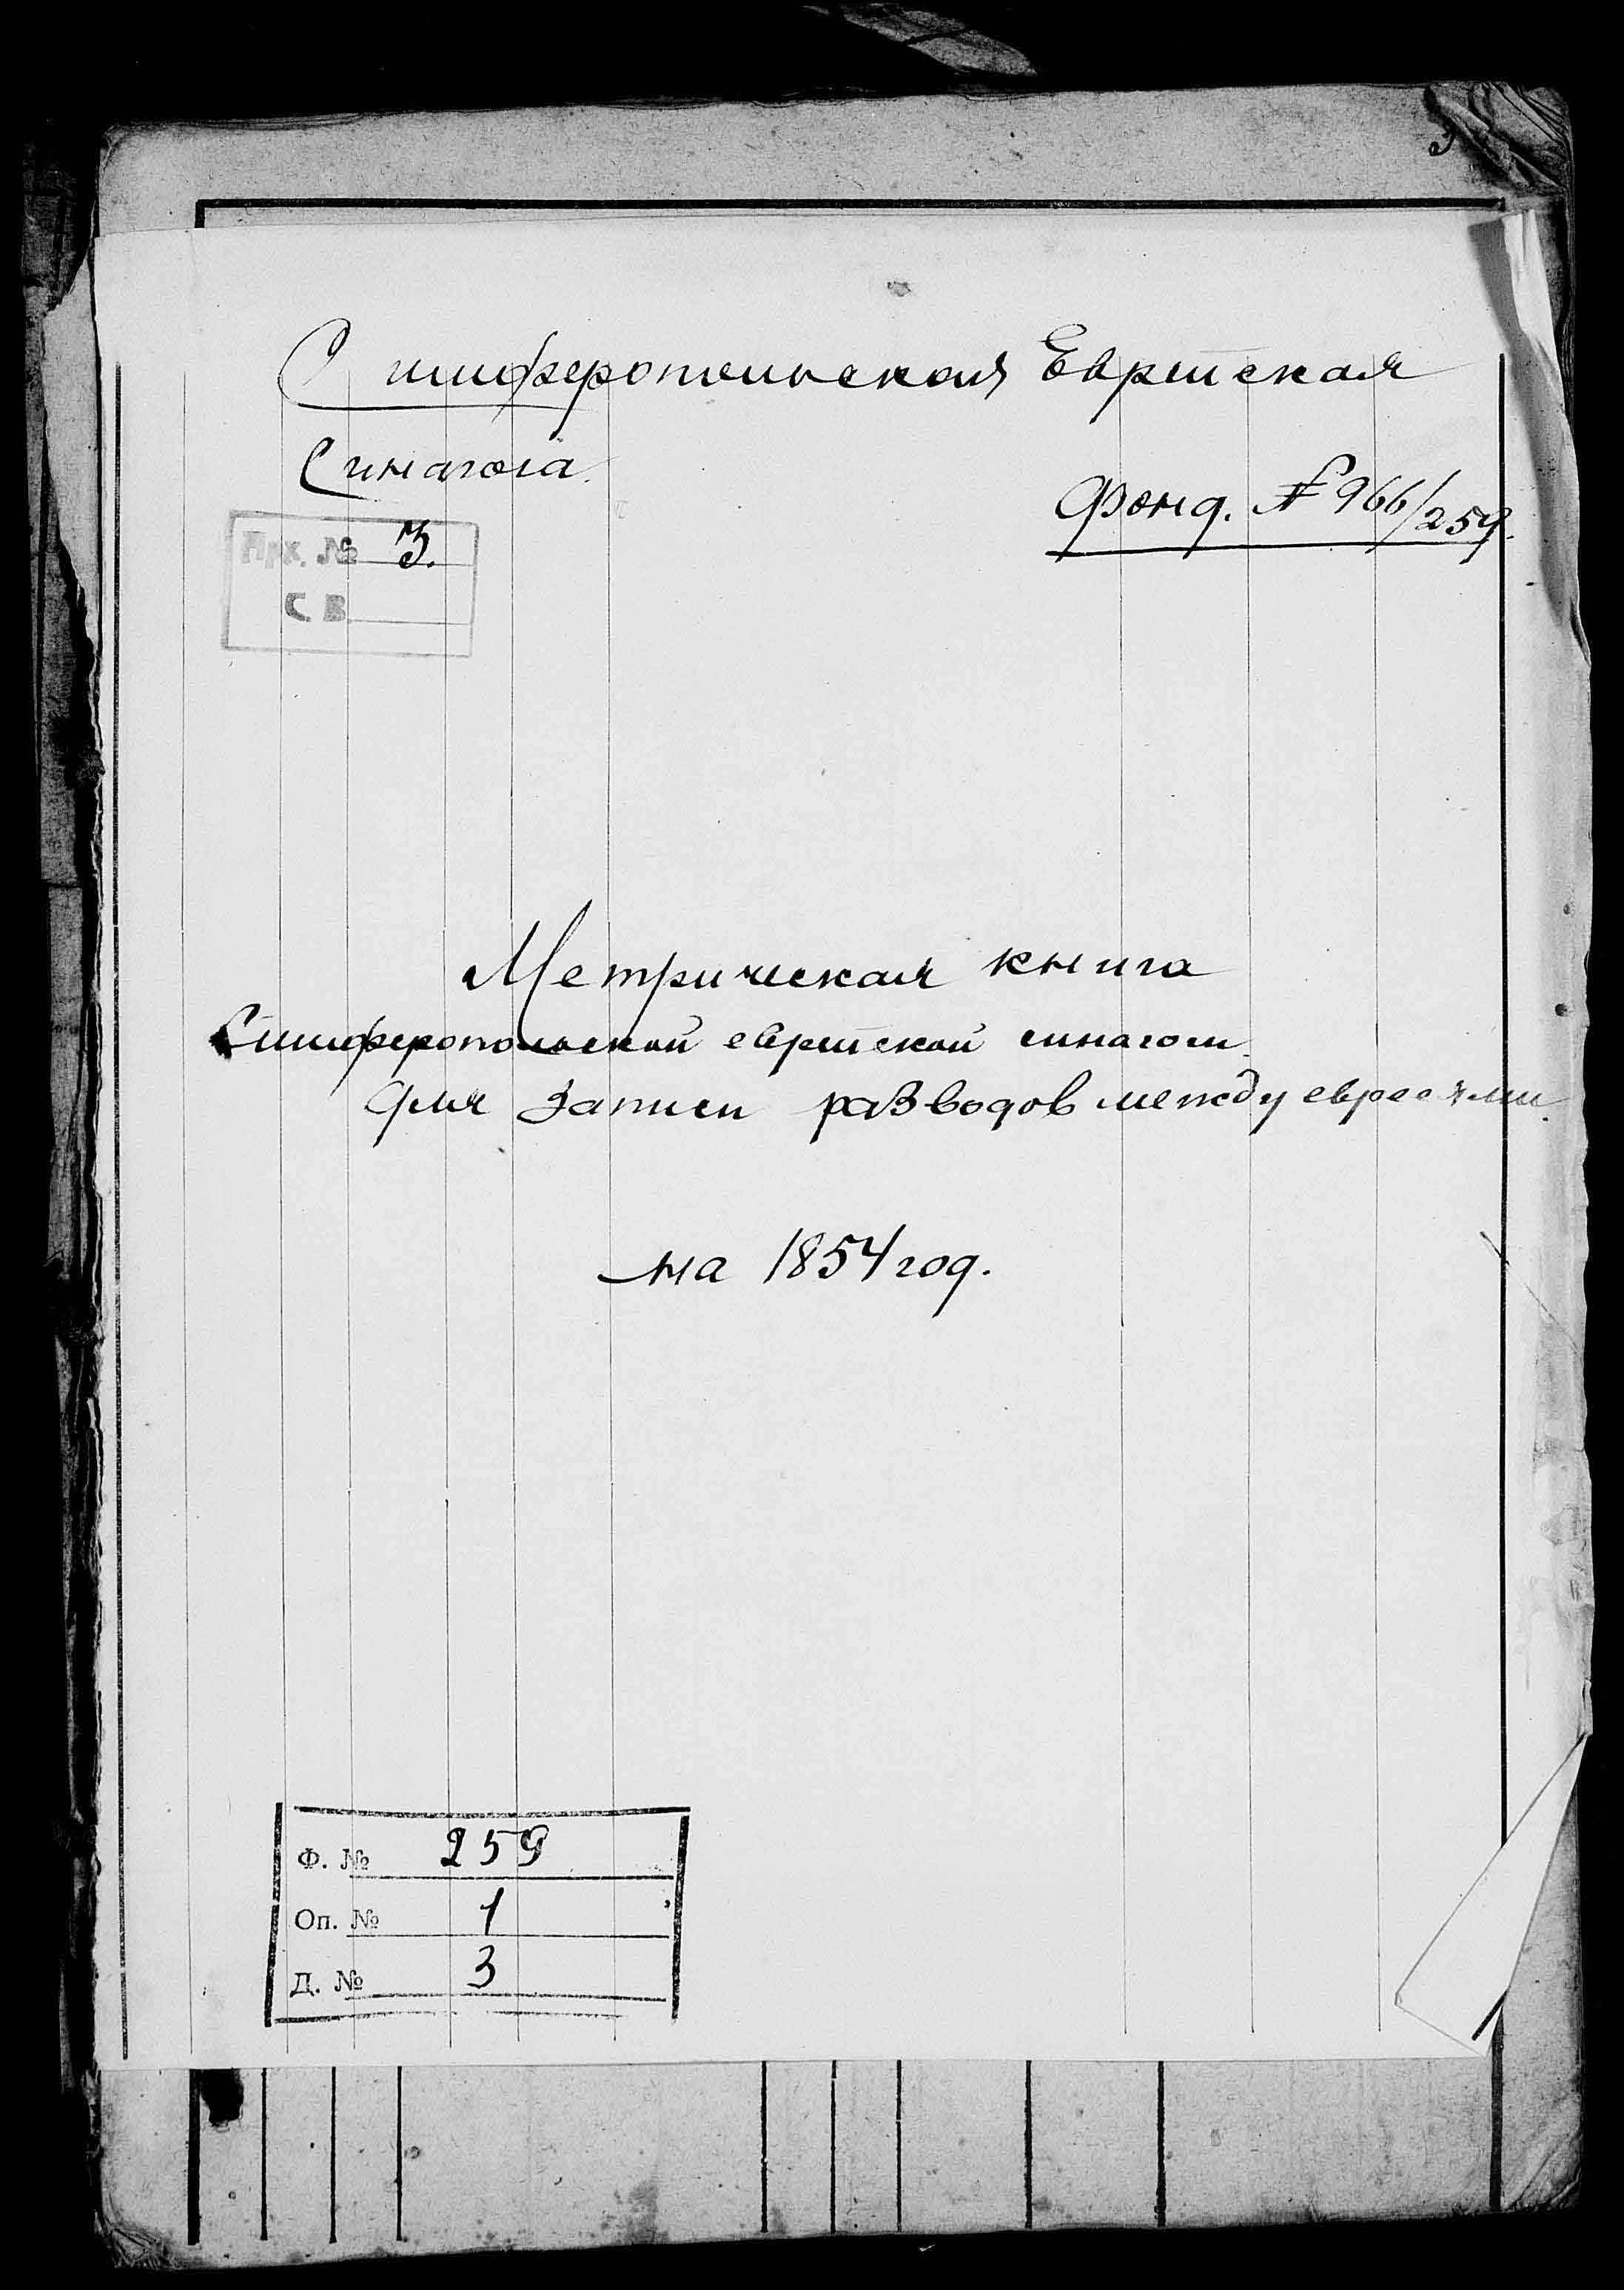 Симферопольская Еврейская
Синагога.
Фонд. № 966/259.
Арх. № 3.
С. В.
Метрическая книга
Симферопольской еврейской синагоги
для записи разводов между евреями.
на 1854 год.
Ф. № 259
Оп. № 1
Д. № 3